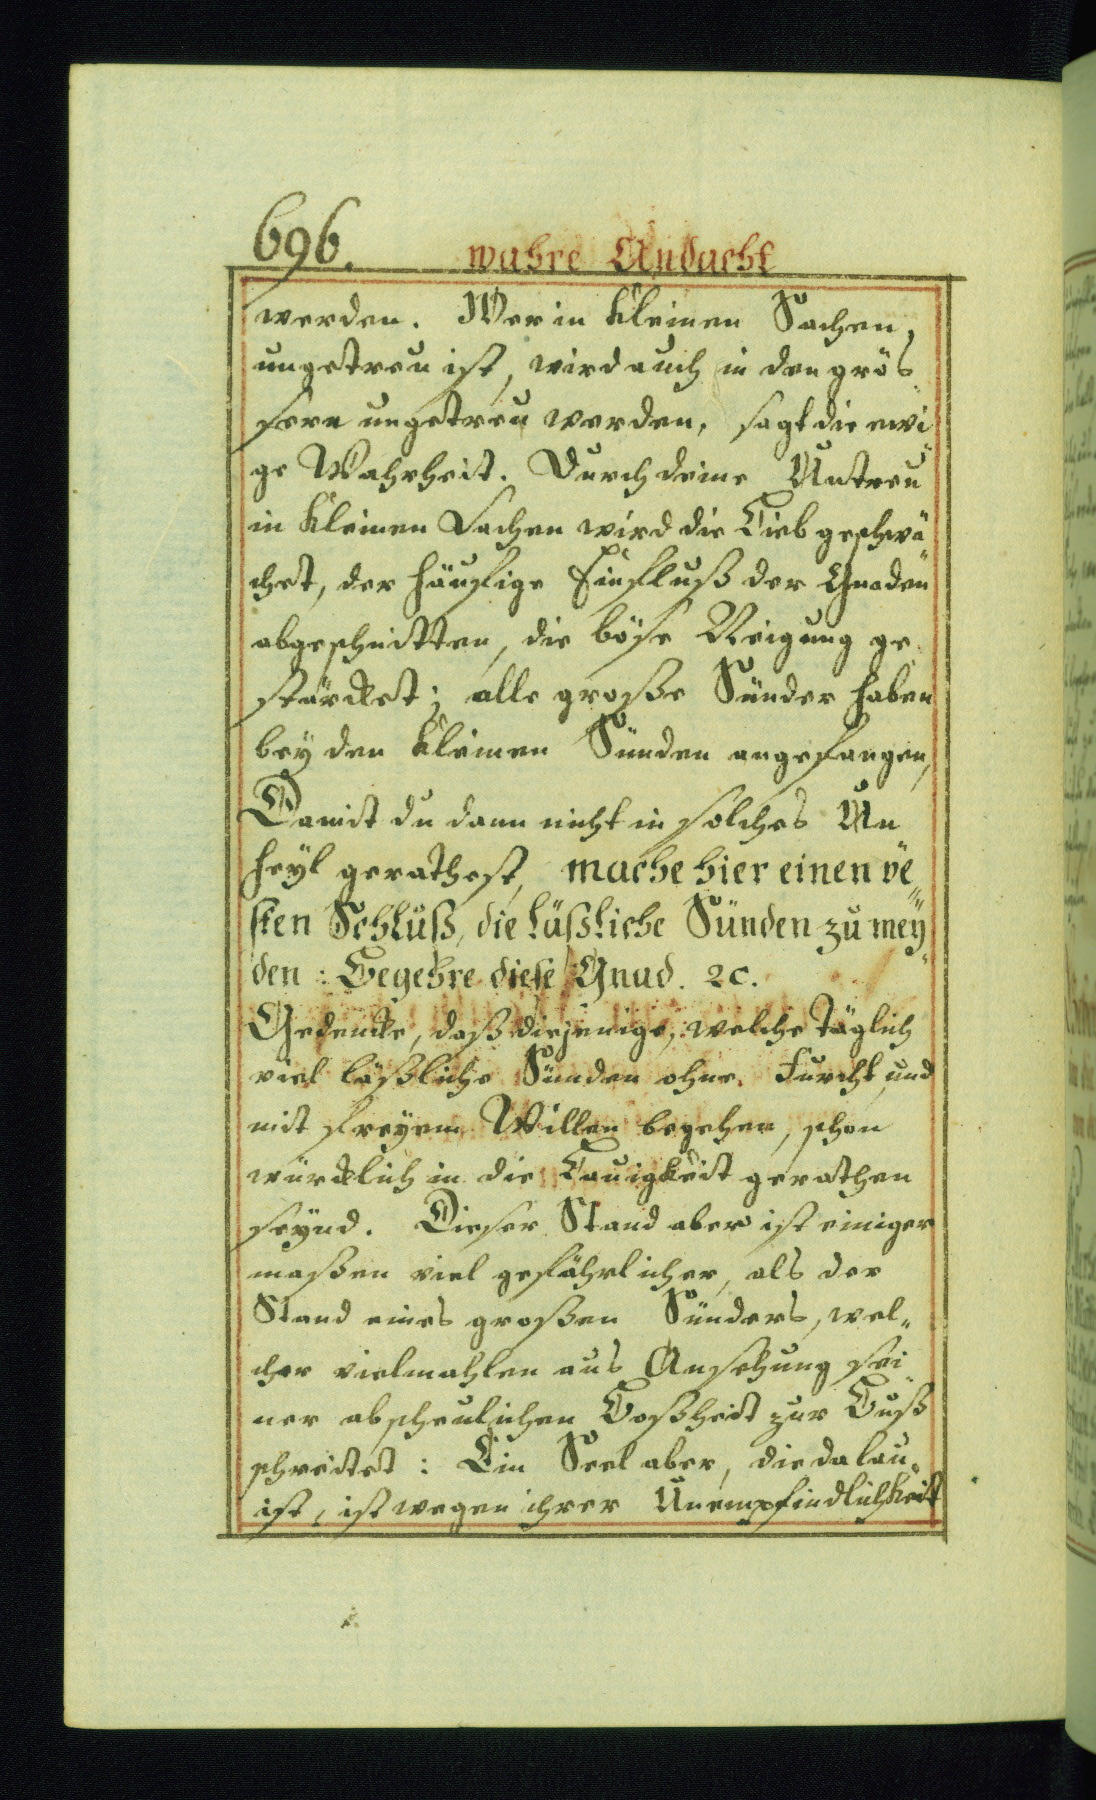 696.
wahre Andacht
werden. Wer in kleinen Sachen,
ungetreu ist, wird auch in den grös
sern ungetreu werden, sagt die ewi
ge Wahrheit. Durch deine Untreu
in kleinen Sachen wird die Lieb geschwä
chet, der häuffige Einfluß der Gnaden
abgeschnitten, die böse Neigung ge
stärcket; alle große Sünder haben
bey den kleinen Sünden angefangen,
Damit du dann nicht in solches Un
heyl gerathest, mache hier einen ve
sten Schluß, die läßliche Sünden zu mey
den: Begehre diese Gnad. 2c.
Gedencke, daß diejenige, welche täglich
viel läßliche Sünden ohne Furcht, und
mit freyem Willen begehen, schon
würcklich in die Lauigkeit gerathen
seynd. Dieser Stand aber ist einiger
maßen viel gefährlicher, als der
Stand eines großen Sünders, wel„
cher vielmahlen aus Ansehung sei
ner abscheulichen Boßheit zur Buß
schreitet: Ein Seel aber, die da lau
ist, ist wegen ihrer Unempfindlichkeit